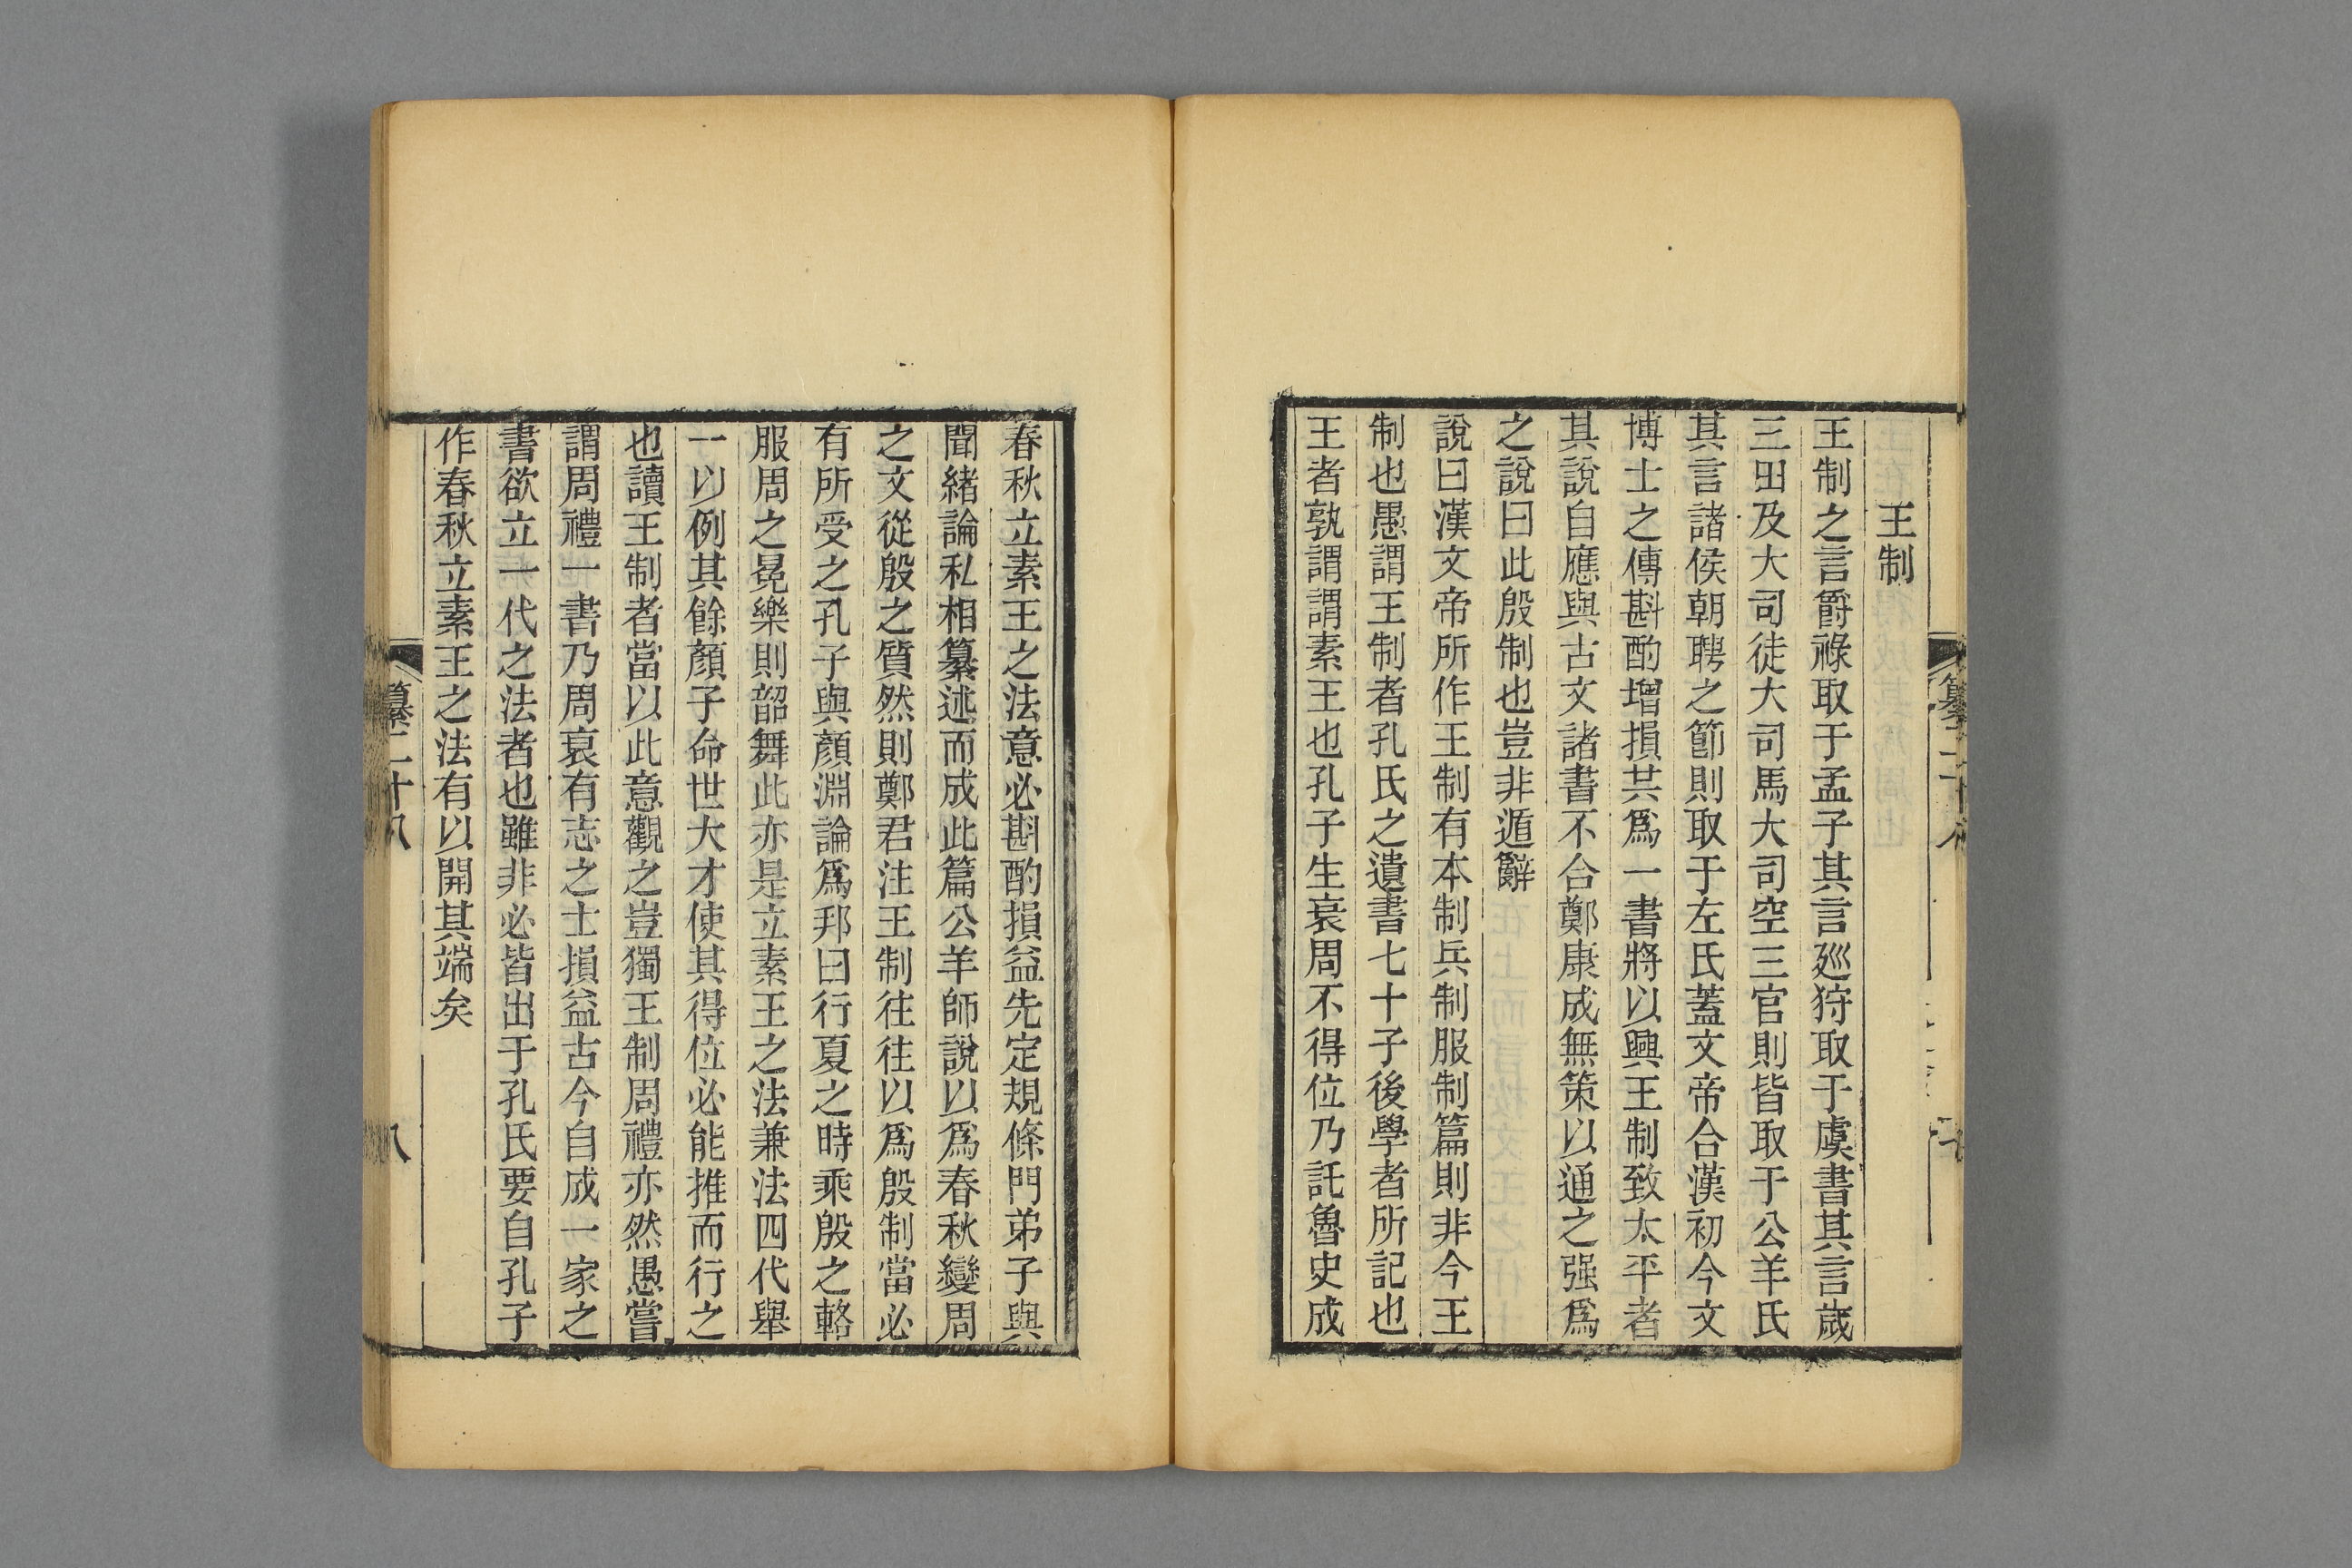 王制
王制之言爵祿取于孟子其言廵狩取于虞書其言歲
三田及大司徒大司馬大司空三官則皆取于公羊氏
其言諸侯朝聘之節則取于左氏蓋文帝合漢初今文
博士之傳斟酌增損共爲一書將以興王制致太平者
其說自應與古文諸書不合鄭康成無策以通之强爲
之說曰此殷制也豈非遁辭
說曰漢文帝所作王制有本制兵制服制篇則非今王
制也愚謂王制者孔氏之遺書七十子後學者所記也
王者孰謂謂素王也孔子生衰周不得位乃託魯史成
春秋立素王之法意必斟酌損益先定規條門弟子與
聞緒論私相纂述而成此篇公羊師說以爲春秋變周
之文從殷之質然則鄭君注王制往往以爲殷制當必
有所受之孔子與顏淵論爲邦曰行夏之時乘殷之輅
服周之冕樂則韶舞此亦是立素王之法兼法四代舉
一以例其餘顏子命世大才使其得位必能推而行之
也讀王制者當以此意觀之豈獨王制周禮亦然愚嘗
謂周禮一書乃周衰有志之士損益古今自成一家之
書欲立一代之法者也雖非必皆出于孔氏要自孔子
作春秋立素王之法有以開其端矣
纂二十八
八